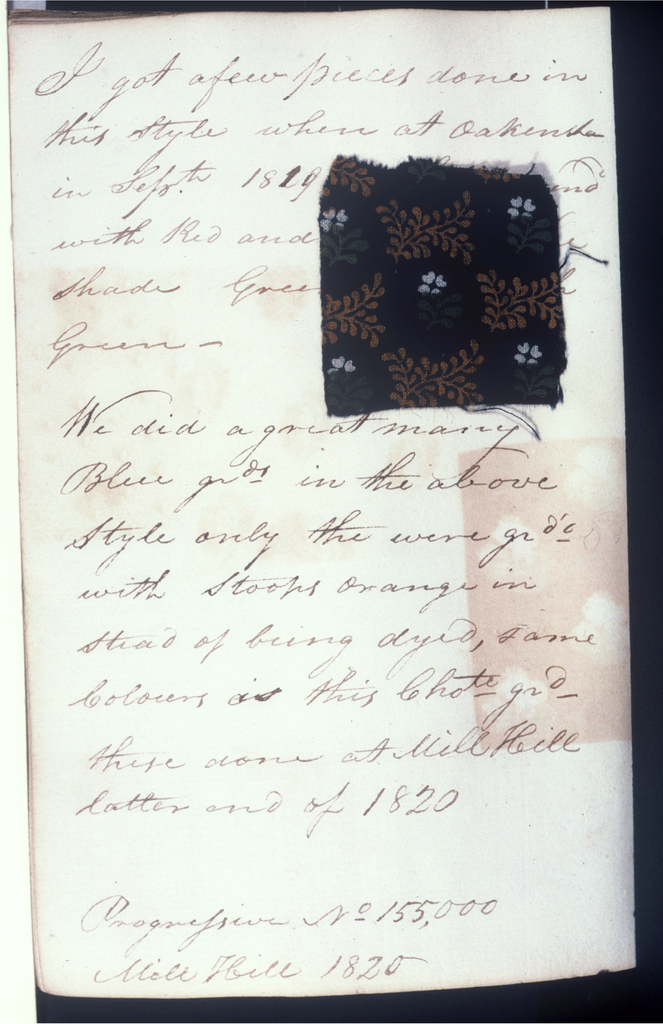 I got a few pieces done in
this Style when at Oakensha
in Sept.th 1819
with Red and
shade Green
Green —
We did a great many
Blue grds in the above
Style only the were grdd
with Stoops orange in
stead of being dyed, same
Colours as this Chote grd
these done at Mill Hill
latter end of 1820
Progressive No 155,000
Mill Hill 1820